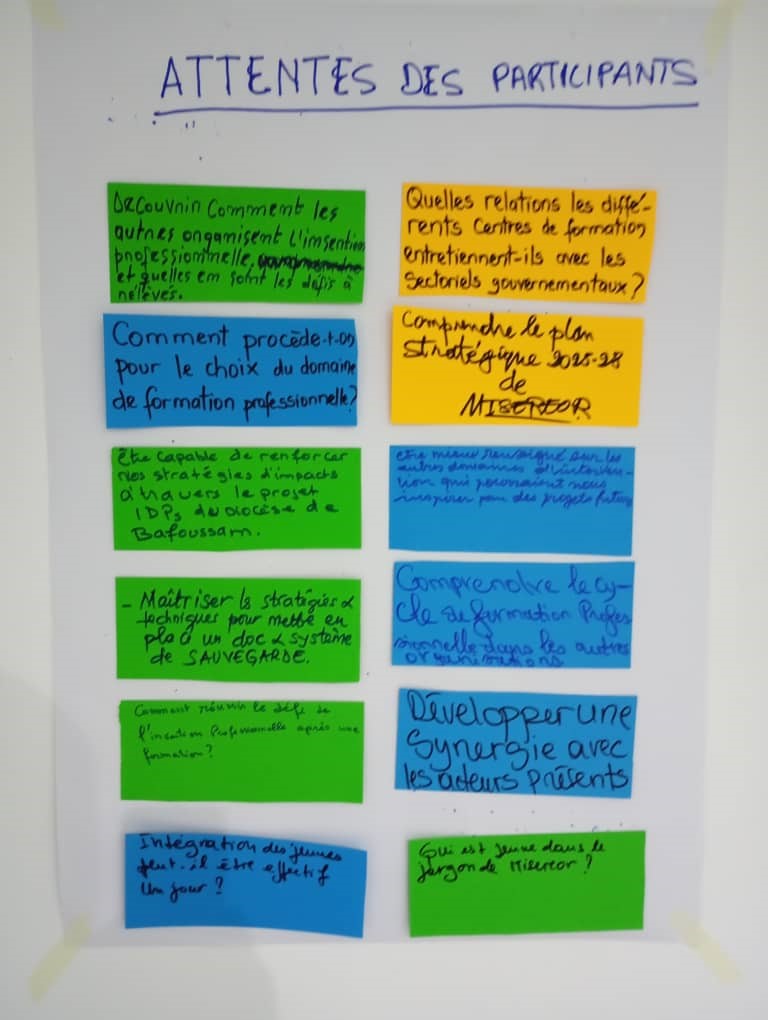 ATTENTES DES PARTICIPANTS
Découvrir comment les
autres organisent l'insertion
professionnelle,
et quelles en sont les défis à
relevés.
Quelles relations les diffé-
rents Centres de formation
entretiennent-ils avec les
Sectoriels gouvernementaux ?
Comment procède-t-on
pour le choix du domaine
de formation professionnelle ?
Comprendre le plan
stratégique 2025-28
de
MISEREOR
être capable de renforcer
nos stratégies d'impacts
à travers le projet
IDPs du diocèse de
Bafoussam.
etre mieux renseigné sur les
autres domaines d'interven-
tion qui pourraient nous
inspirer pour des projets futurs
- Maîtriser ls stratégies &
techniques pour mettre en
place un doc & système
de SAUVEGARDE.
Comprendre le cy-
cle de formation Profes
sionnelle dans les autres
organisations
Comment réussir le défi de
l'insertion Professionnelle après une
formation ?
Développer une
Synergie avec
les acteurs présents
Intégration des jeunes
peut-il être effectif
Un jour ?
Qui est jeune dans le
jargon de Misereor ?